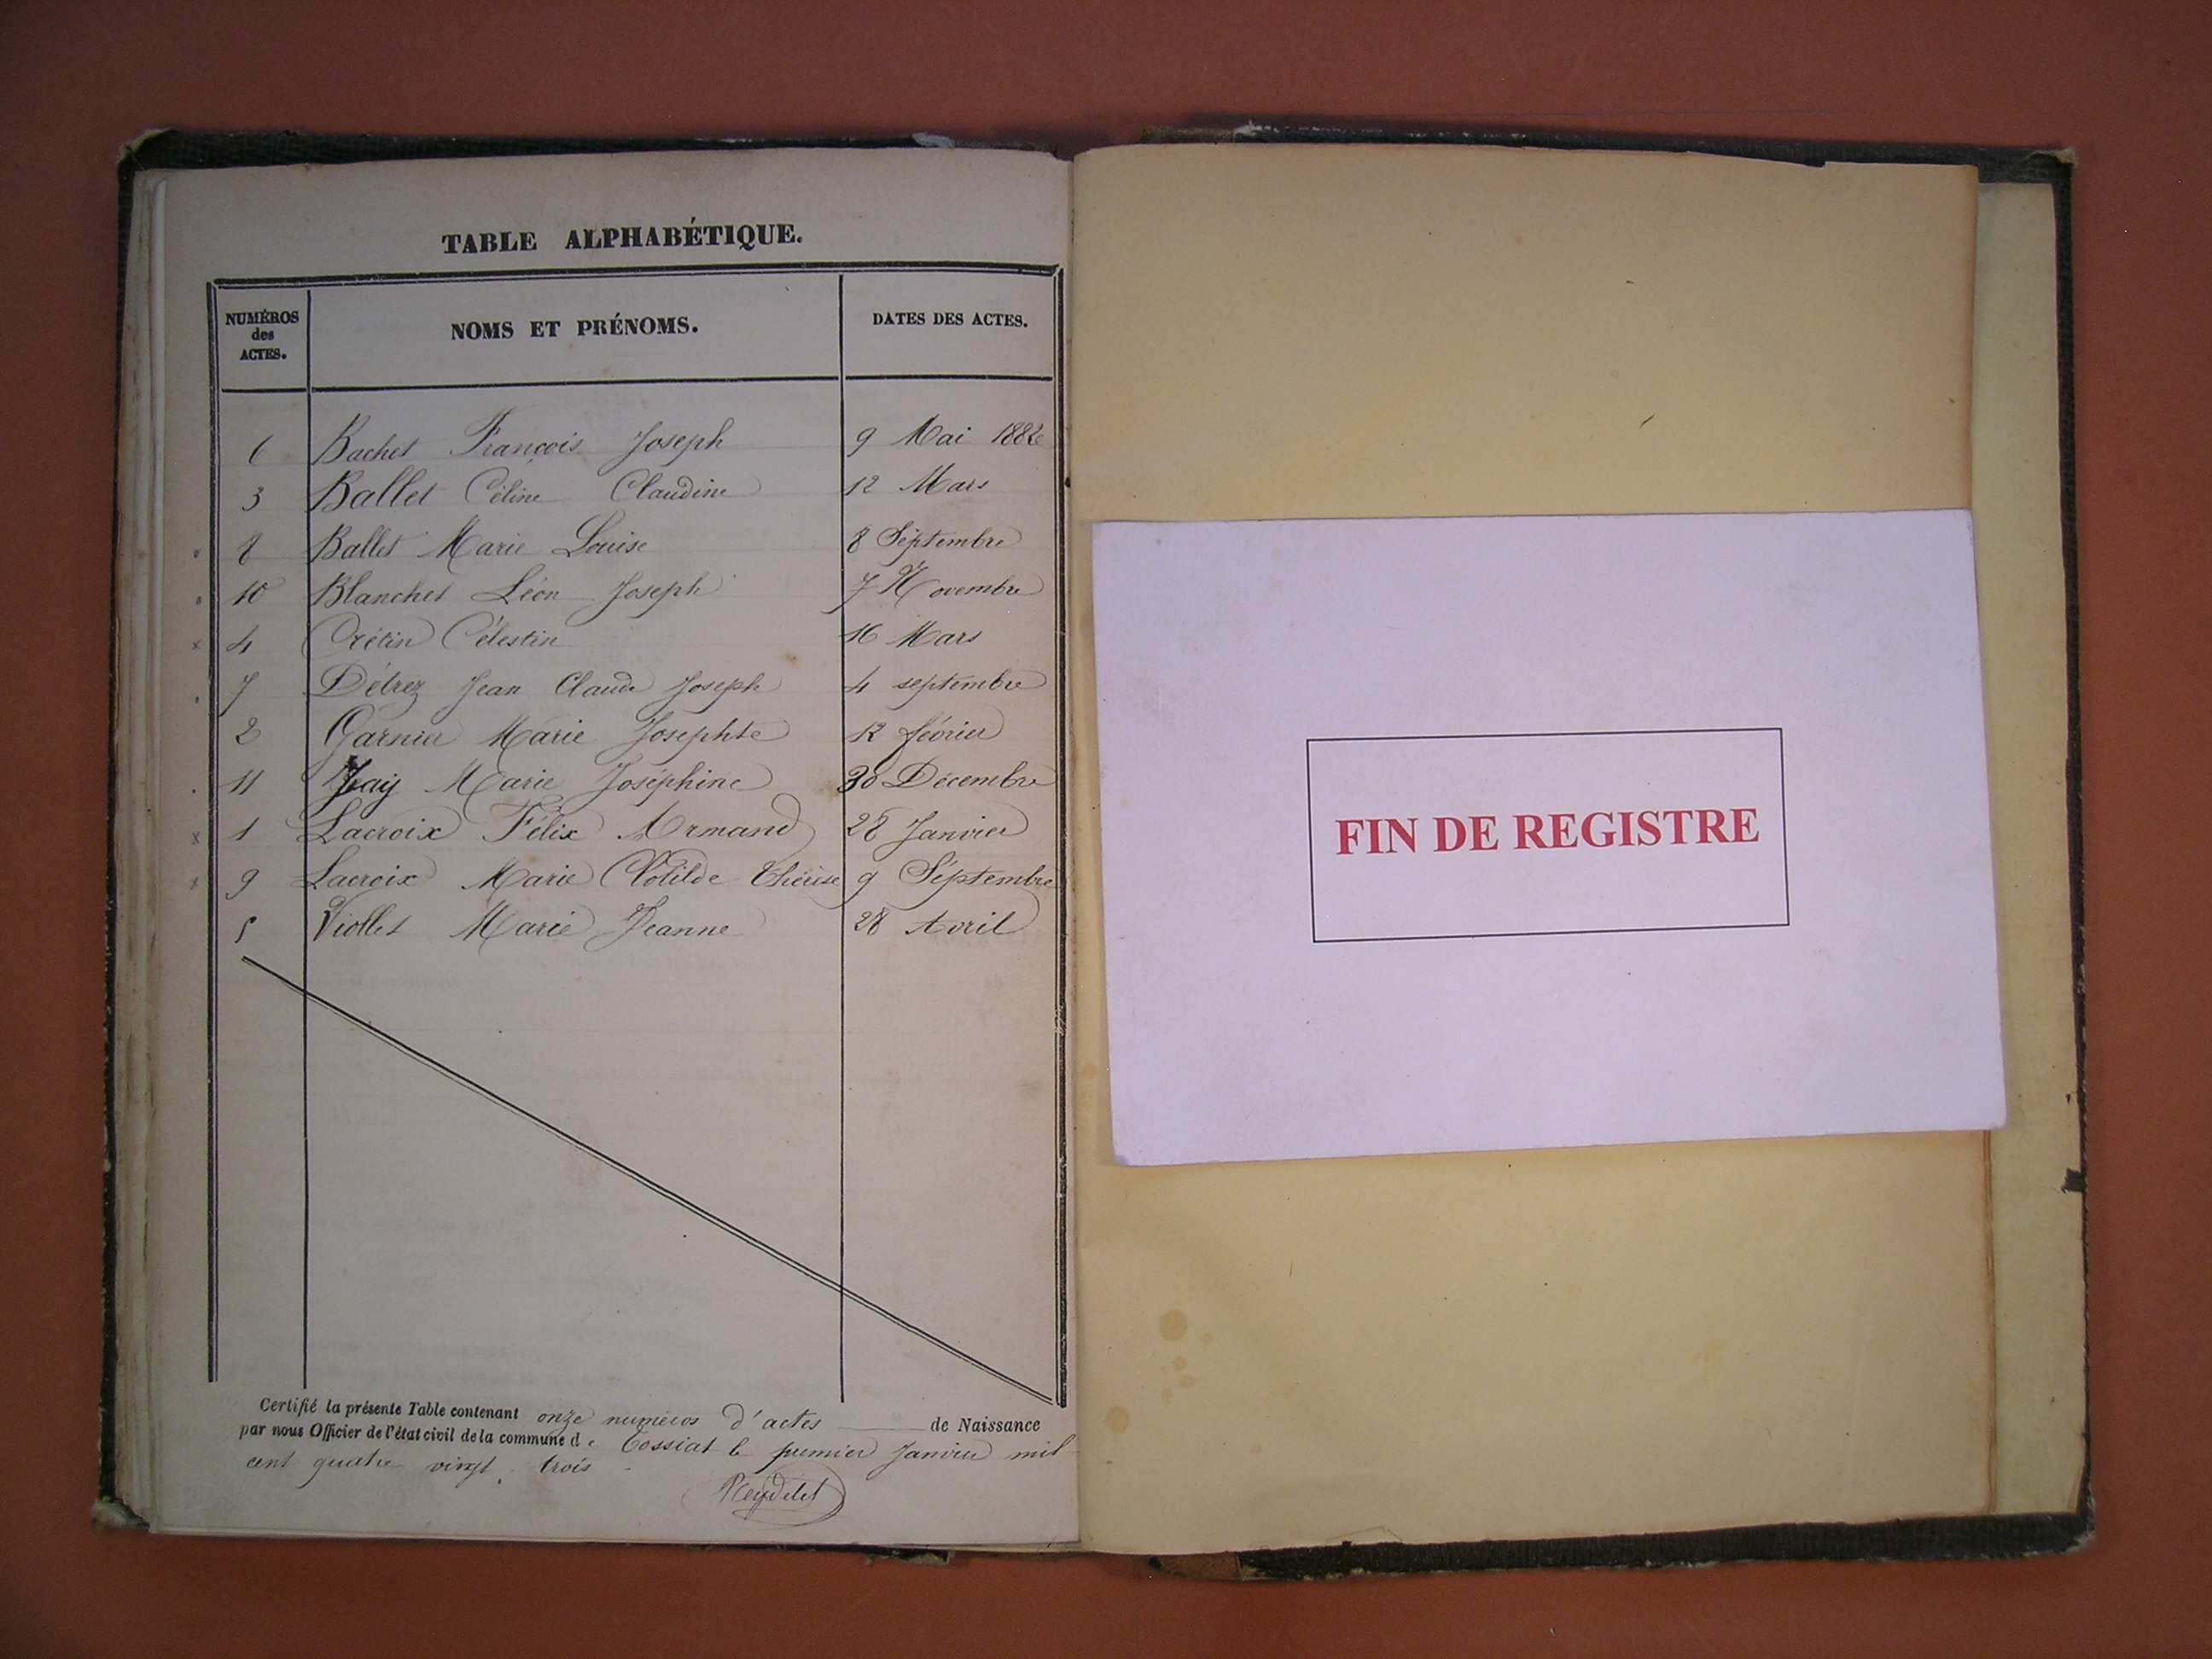 TABLE ALPHABÉTIQUE.
NUMÉROS des ACTES. NOMS ET PRÉNOMS. DATES DES ACTES.
6 Bachet François Joseph 9 Mai 1882
3 Ballet Céline Claudine 12 Mars
8 Ballet Marie Louise 8 Septembre
10 Blanchet Léon Joseph 7 Novembre
4 Crétin Célestin 16 Mars
7 Détrez Jean Claude Joseph 4 septembre
2 Garnier Marie Josephte 12 février
11 Jay Marie Joséphine 30 Décembre
1 Lacroix Félix Armand 28 Janvier
9 Lacroix Marie Clotilde Thérèse 9 Septembre
5 Viollet Marie Jeanne 28 Avril
Certifié la présente Table contenant onze numéros d'actes de Naissance
par nous Officier de l'état civil de la commune de Tossiat le premier Janvier mil
cent quatre vingt trois
Reydelet
FIN DE REGISTRE